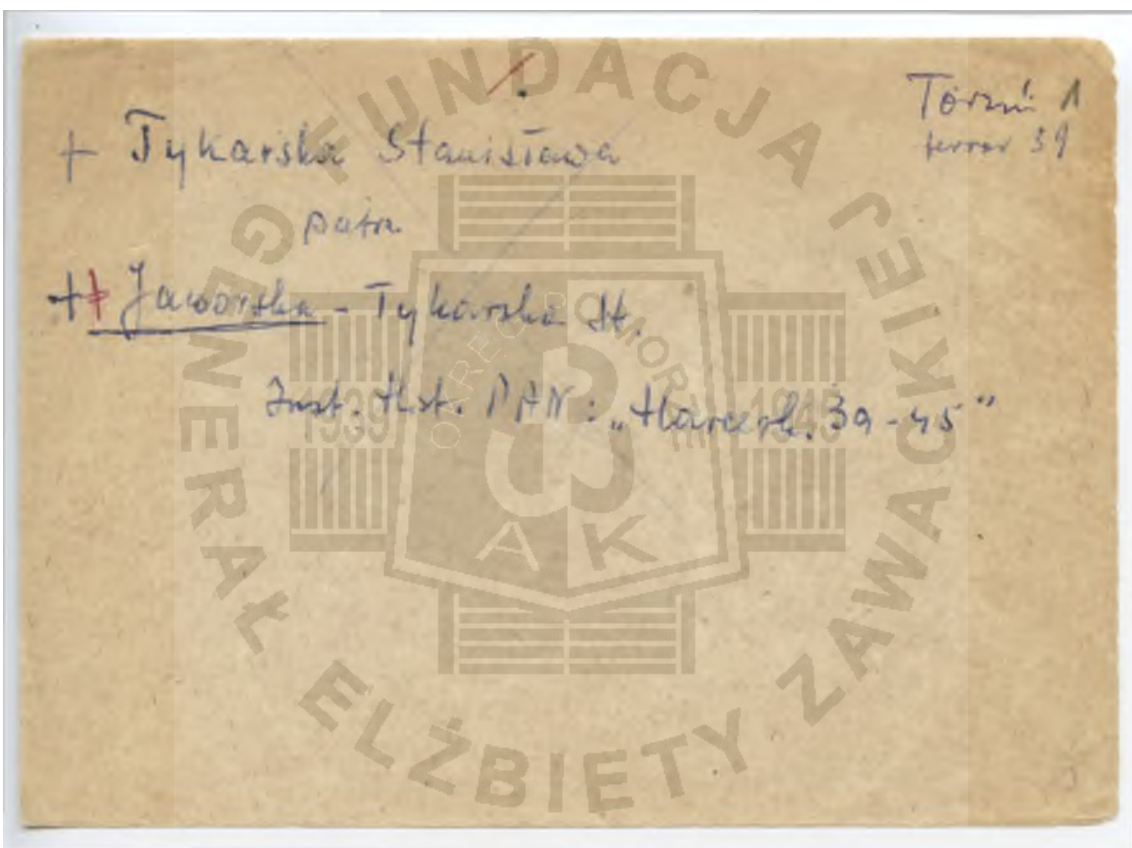 Toruń 1
terror 39
+ Tykarska Stanisława
patrz
++ Jaworska - Tykarska St.
Inst. Hist. PAN: „Harcersk. 39-45"
FUNDACJA
GENERAŁ ELŻBIETY ZAWACKIEJ
POMORZE
1939
1945
AK